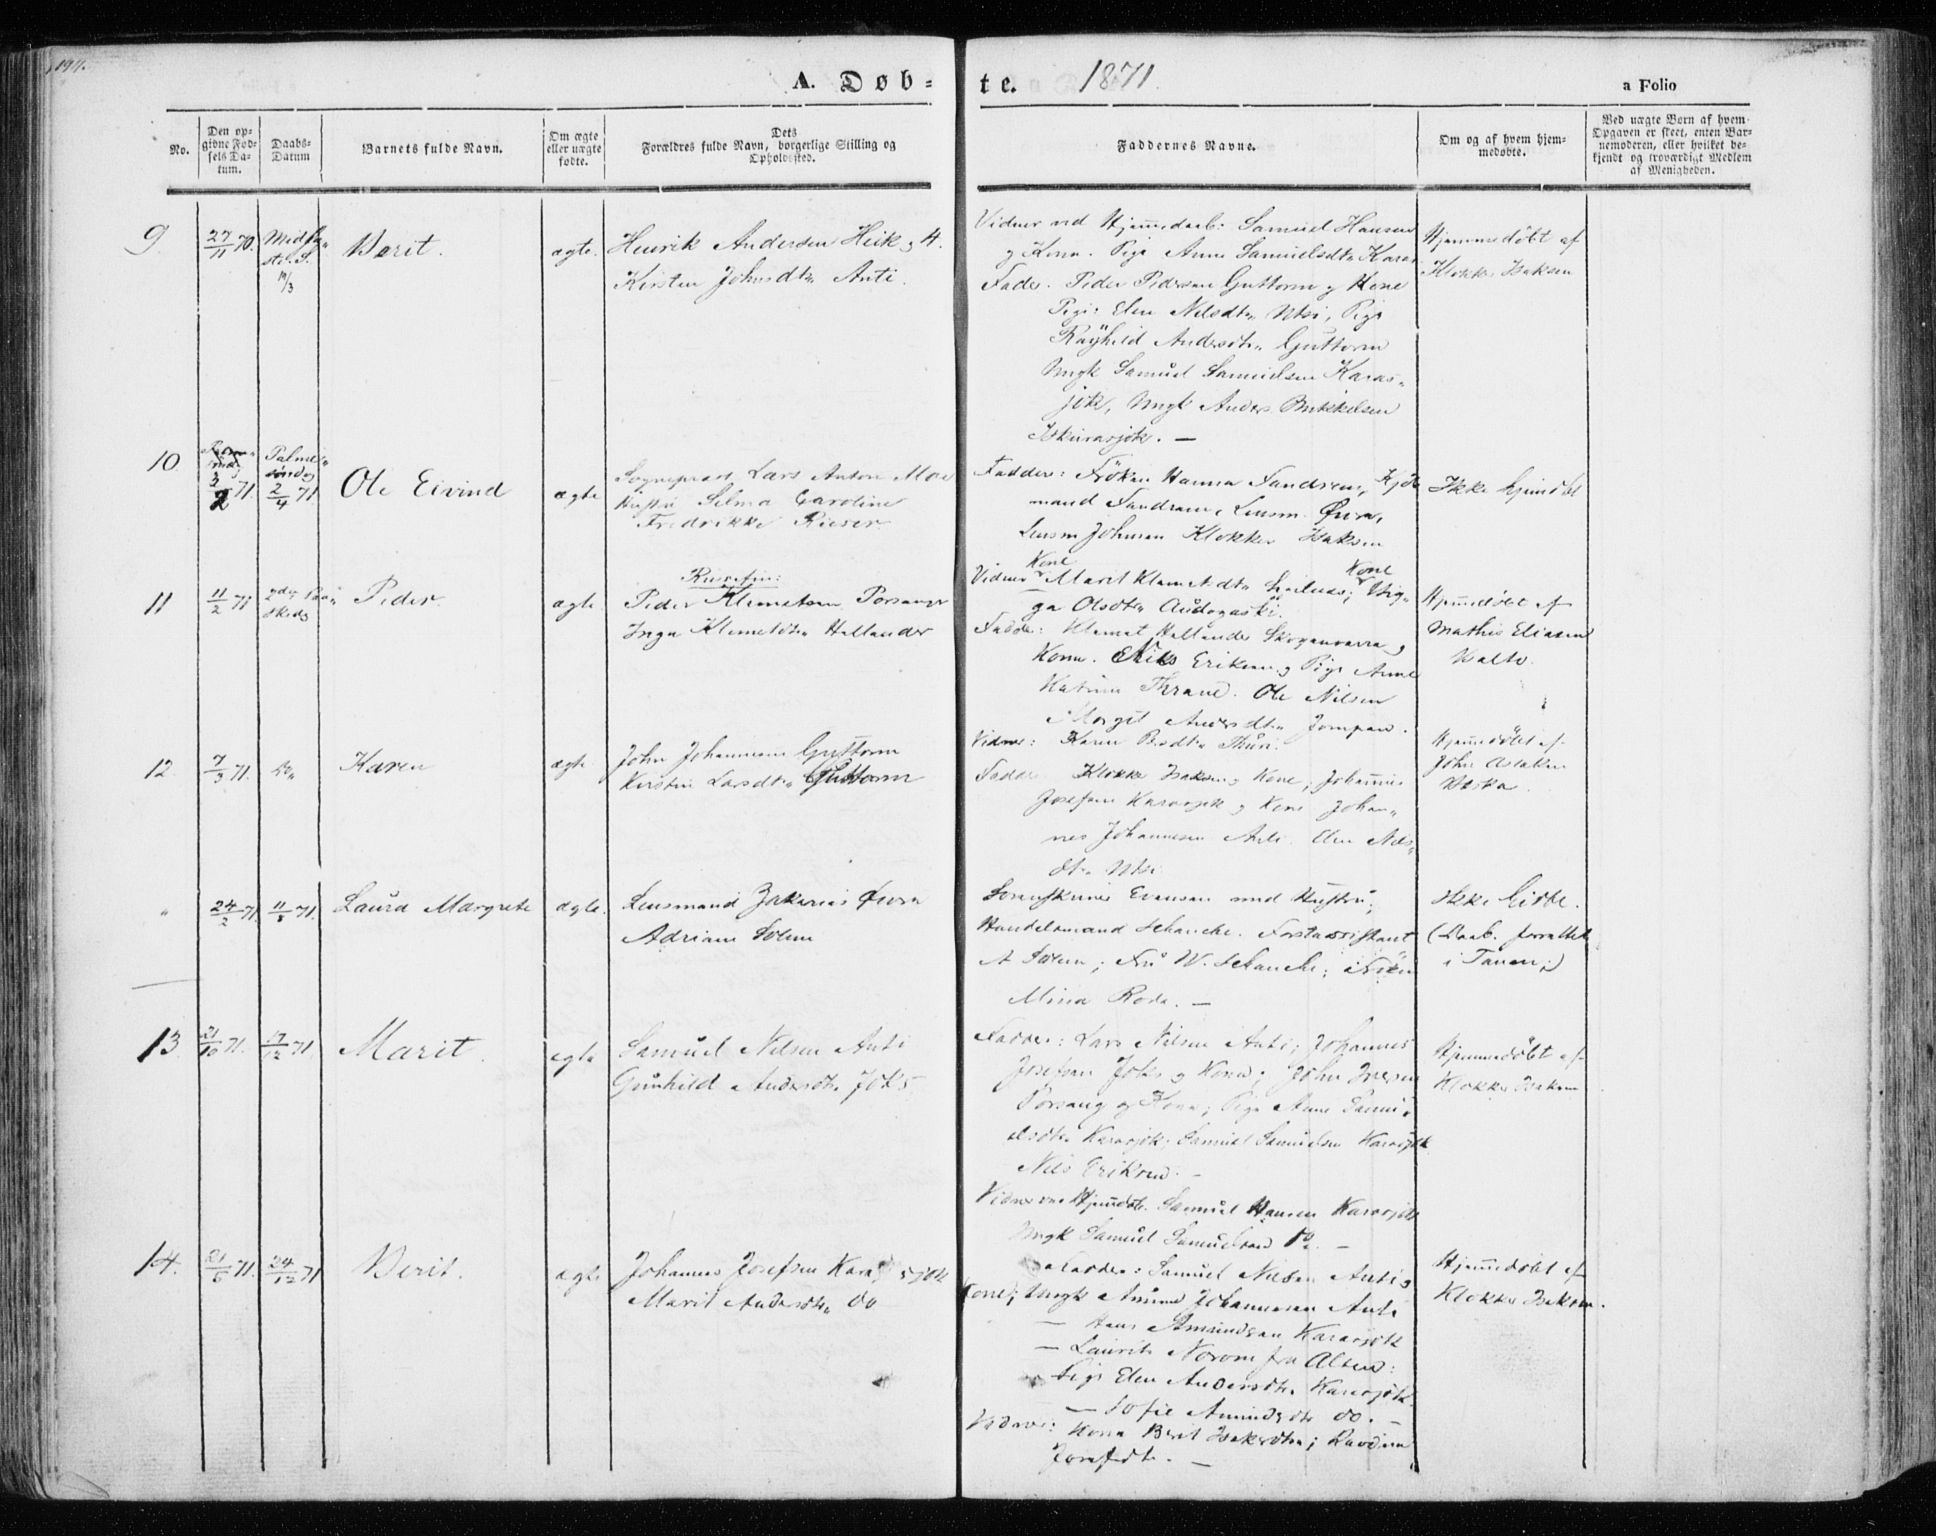 194.
A. Døb-
te. 1871.
a Folio
No.
Den op-
gidne Fød-
sels Da-
tum.
Daabs-
Datum
Barnets fulde Navn.
Om ægte
eller uægte
fødte.
Dets
Forældres fulde Navn, borgerlige Stilling og
Opholdssted.
Faddernes Navne.
Om og af hvem hjem-
medøbte.
Ved uægte Børn af hvem
Opgaven er skeet, enten Bar-
nemoderen, eller hvilket be-
kjendt og troværdigt Medlem
af Menigheden.
9.
27/11 70.
19/3
Berit.
ægte.
Henrik Andersen Heik
Kirsten Johnsdtr Anti.
Vidner ved Hjemmedaab: Samuel Hansen
og Kone. Pige Anne Samuelsdtr Karas
Fadd. Peder Pedersen Guttorm og Kone
Pige: Elen Nilsdtr Utsi, Pige
Raghild Andersdtr Guttorm
Ungk Samuel Samuelsen Karas-
jok, Ungk Anders Mikkelsen
Iskurasjok. —
Hjemmedøbt af
Klokker Isaksen
10
3/2 71.
Palme-
søndag
2/4 71.
Ole Eivind
ægte
Sogneprest Lars Anton Moe
Hustru Selma Caroline
Fredrikke Rieser
Faddere: Frøken Hanna Fandrem, Kjøb
mand Fandrem, Lensm. Øvre,
Lensm Johnsen Klokker Isaksen
Ikke hjemdøbt
11
11/2 71
2den Paa-
skedag
Peder.
ægte
Peder Klemetsen Porsanger
Inga Klemetsdtr Hallander
Kone Kone
Vidner Marit Klemetsdtr
ga Olsdtr
Fadde: Klemet Hallander Skoganvarra og
Kone. Niks Eriksen og Pige Anne
Katrine Thrane. Ole Nilsen
Margit Andersdtr Jompan.
Hjemmedøbt af
Mathis Eliasen
Balto.
12
7/3 71.
Do
Karen
ægte
John Johannesen Guttorm
Kirsten Larsdtr Guttorm
Vidner: Karen
Fadde Klokker Isaksen og Kone; Johannes
Josefsen Karasjok og Kone Johan-
nes Johannesen Anti. Elen Nils-
dtr Utsi
Hjemmedøbt af
John Aslaksen
"
24/2 71.
71.
Laura Margrete
ægte.
Lensmand Zakarias Øvre
Adriane Solem
Evensen med Hustru;
Handelsmand Schanche. Forstassistent
A Solem; Fru W. Schanche; Frøken
Mina Rode. —
(Daab. forrettet
i Tanen;)
13.
21/10 71.
17/12 71.
Marit.
ægte
Samuel Nilsen Anti
Gunhild Andersdtr Joks
Fadder: Lars Nilsen Anti; Johannes
Josefsen Joks og Kone; John Iversen
Porsang og Kone; Pige Anne Samu-
elsdtr Karasjok; Samuel Samuelsen Karasjok
Nils Eriksen. —
Vidner ved Hjemdøb. Samuel Hansen Karasjok
Ungk Samuel Samuelsen Do. —
Hjemmedøbt af
Klokker Isaksen
14.
21/6 71.
24/12 71
Berit.
ægte
Johannes Josefsen Karasjok
Marit Andersdtr do
Fadder: Samuel Nilsen Anti og
Kone; Ungk Amund Johannesen Anti
— Hans Amundsen Karasjok
— Laurits Norom fra Alten:
Pige Elen Andersdtr Karasjok.
— Sofie Amundsdtr do. —
Vidner: Kone Berit Isaksdtr; Ravdna
Josefsdtr. —
Hjemmedøbt af
Klokker Isaksen.